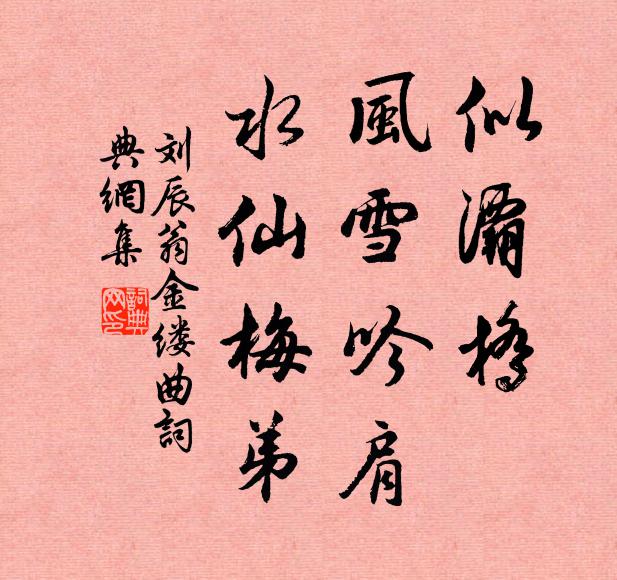 似灞橋
風雪吟肩
水仙梅弟
刘辰翁金缕曲詞
典網集
詞典網印